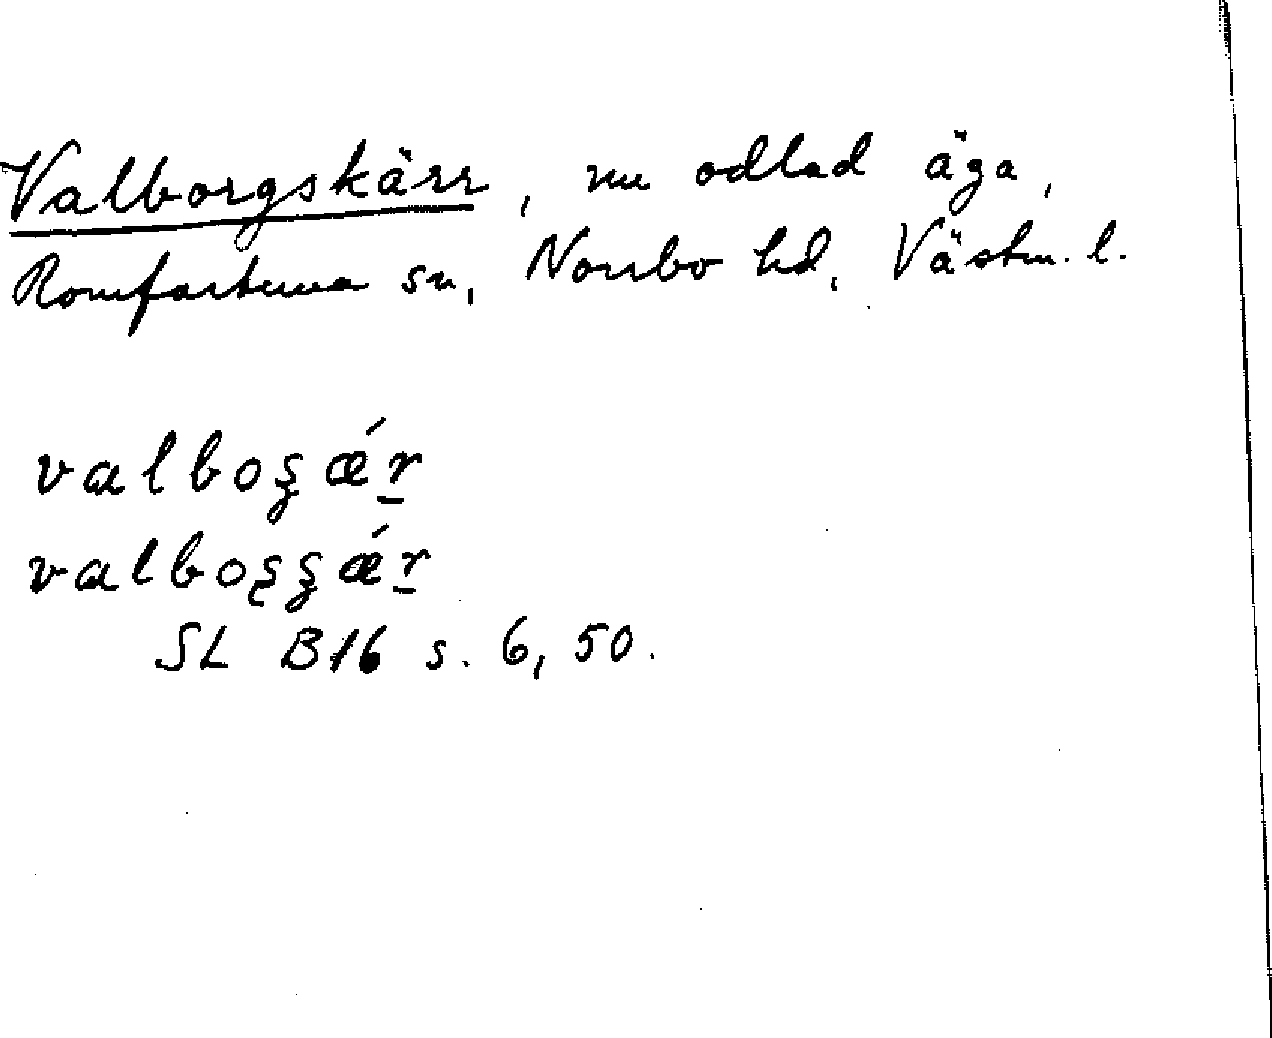 Valborgskärr, nu odlad äga,
Romfartuna sn, Norrbo hd, Västm. l.
valboʂǽr̲
valboʂʂǽr̲
SL B16 s. 6, 50.